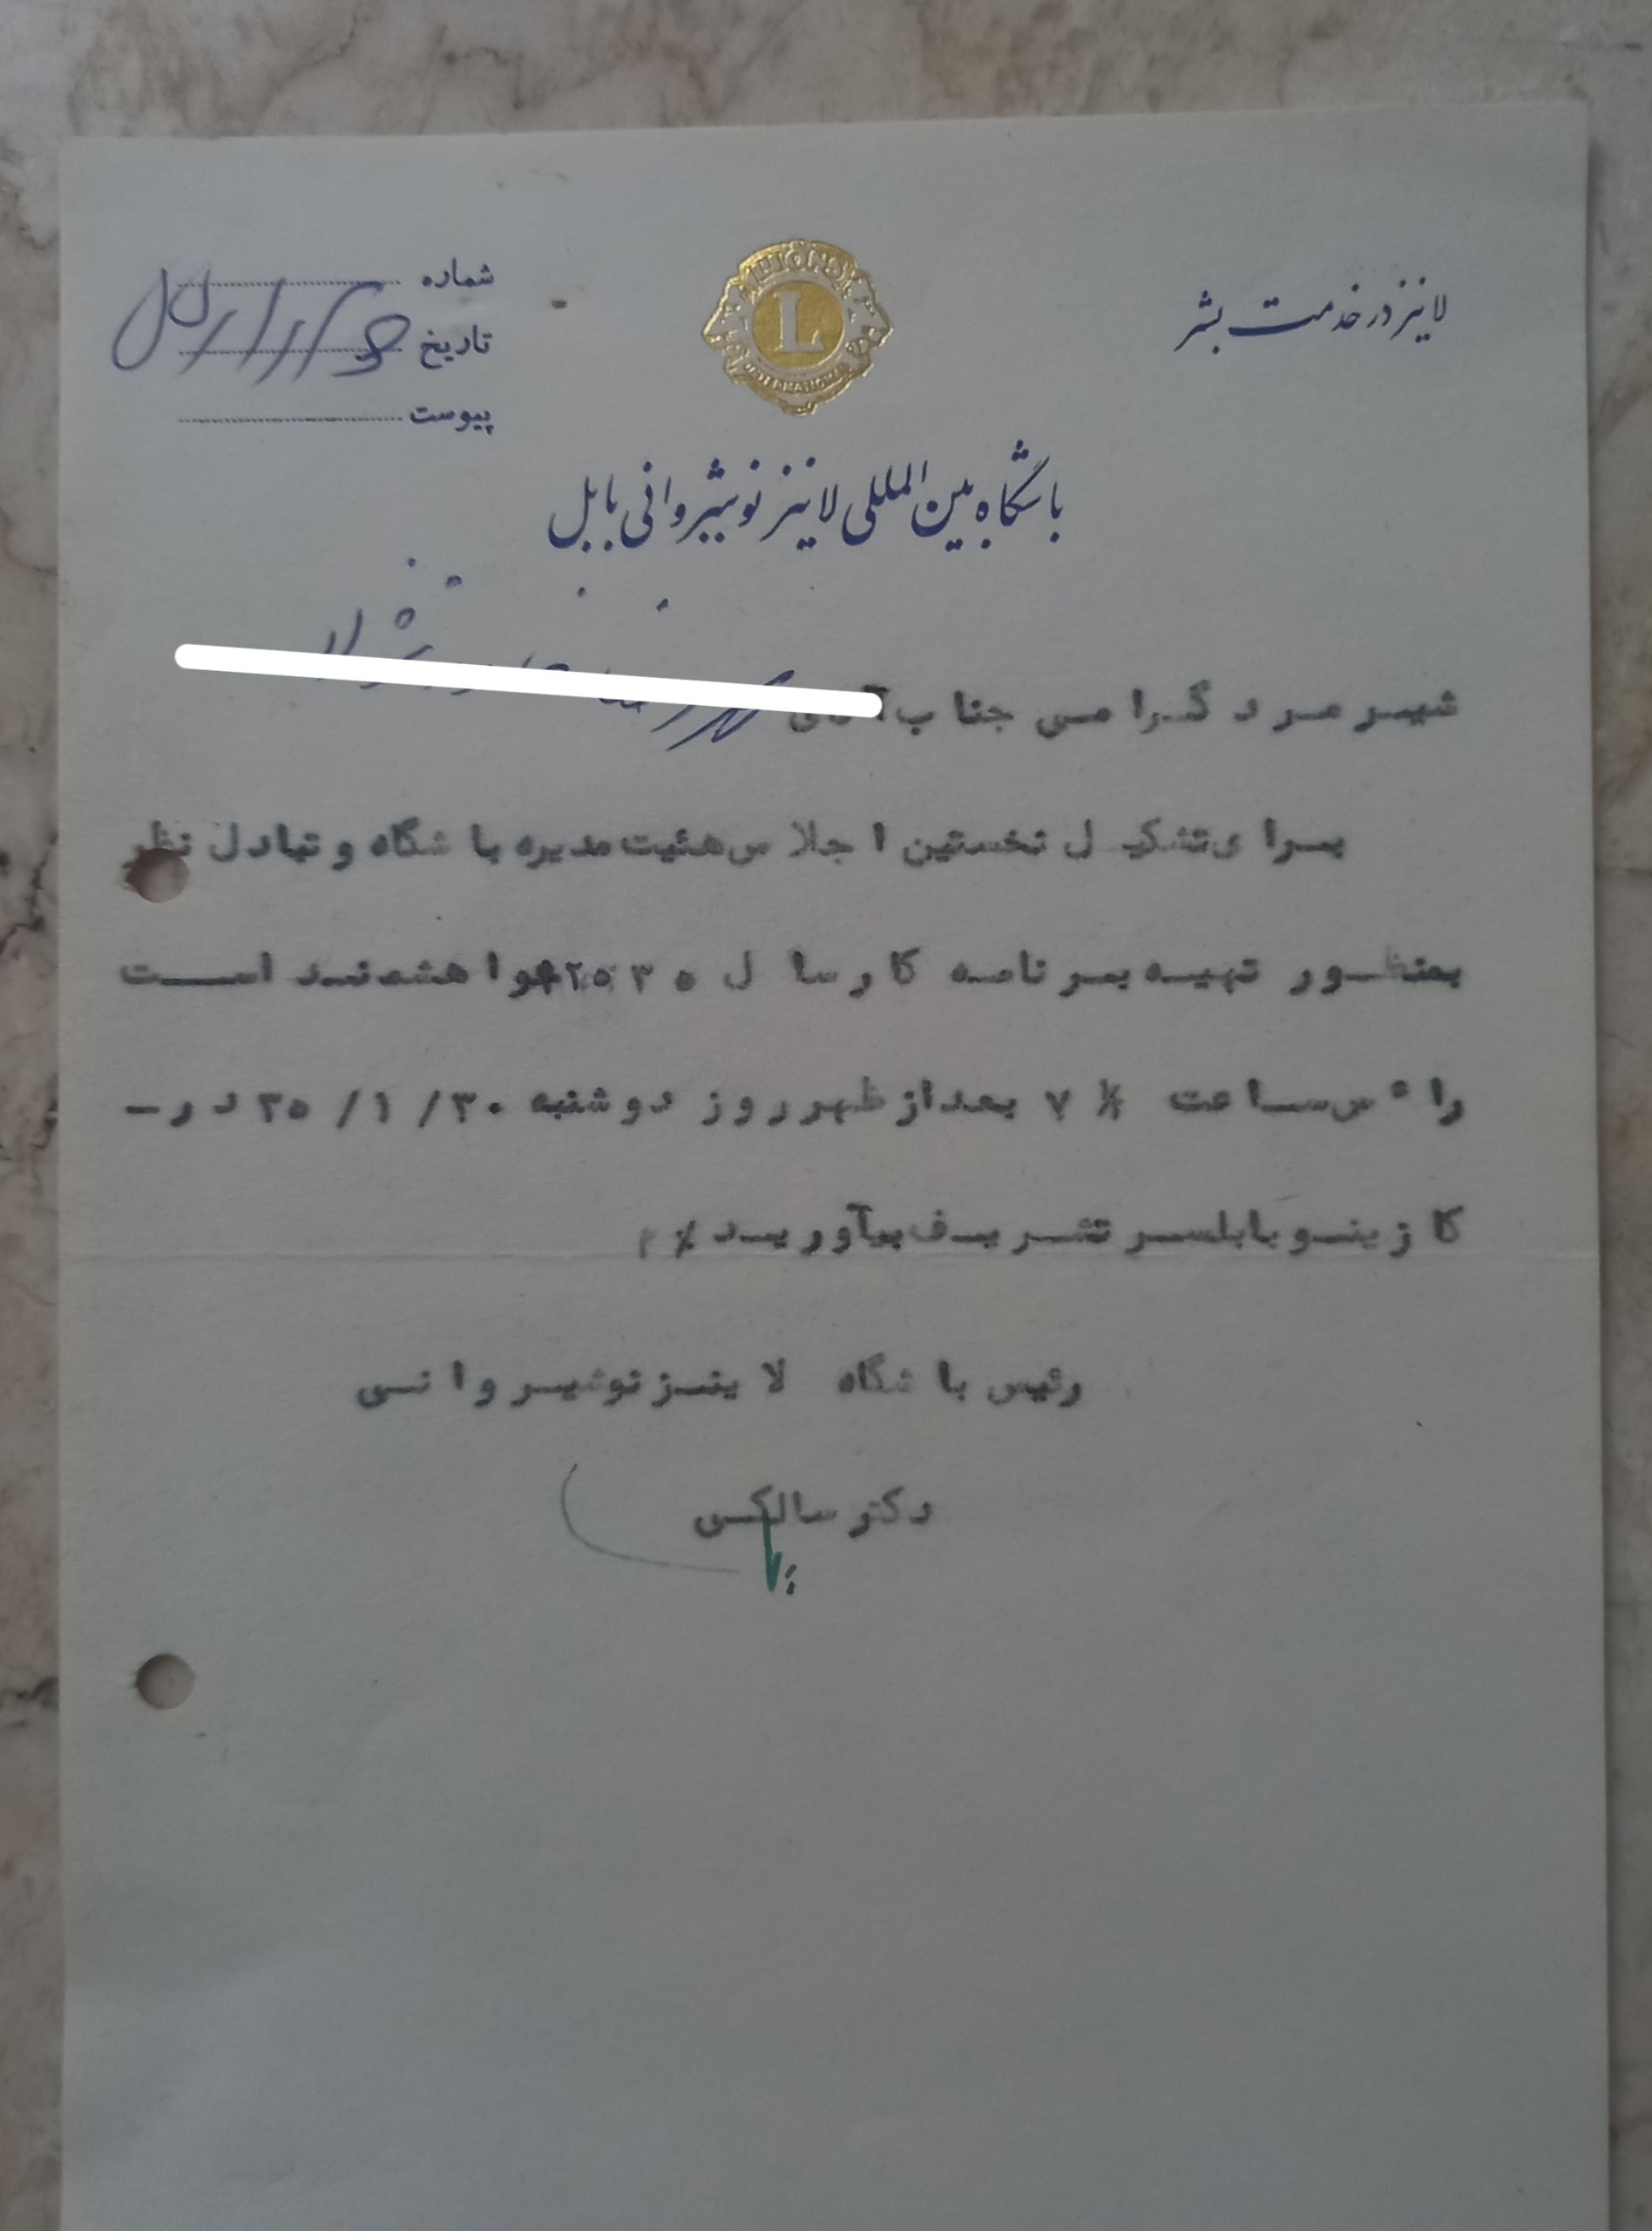 لاینز در خدمت بشر
LIONS
L
INTERNATIONAL
شماره
تاریخ
پیوست
باشگاه بین المللی لاینز نوشیروانی بابل
شیر مرد گرامی جناب آقای
برای تشکیل نخستین اجلاس هئیت مدیره باشگاه و تبادل نظر
بمنظور تهیه برنامه کار سال ۲۵۳۵ خواهشمند است
رأس ساعت ۷ بعد از ظهر روز دوشنبه ۳۰/ ۱/ ۳۵ در-
کازینو بابلسر تشریف بیآورید
رئیس باشگاه لاینز نوشیروانی
دکتر سالکی